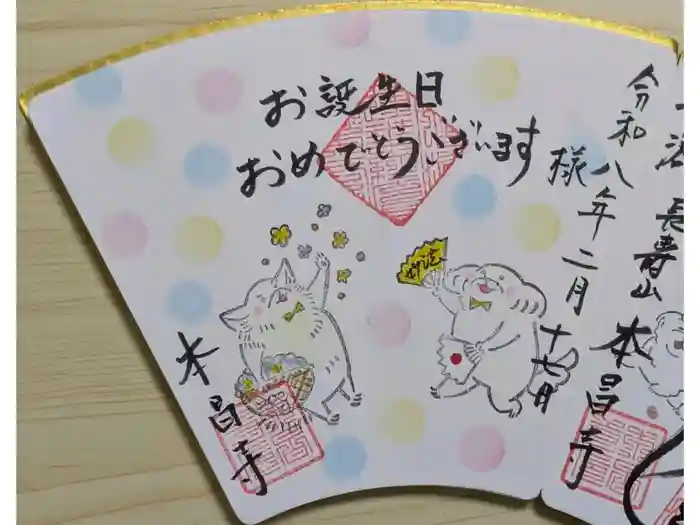 お誕生日
おめでとうございます
様
本昌寺
令和八年二月十七日
長寿山
本昌寺